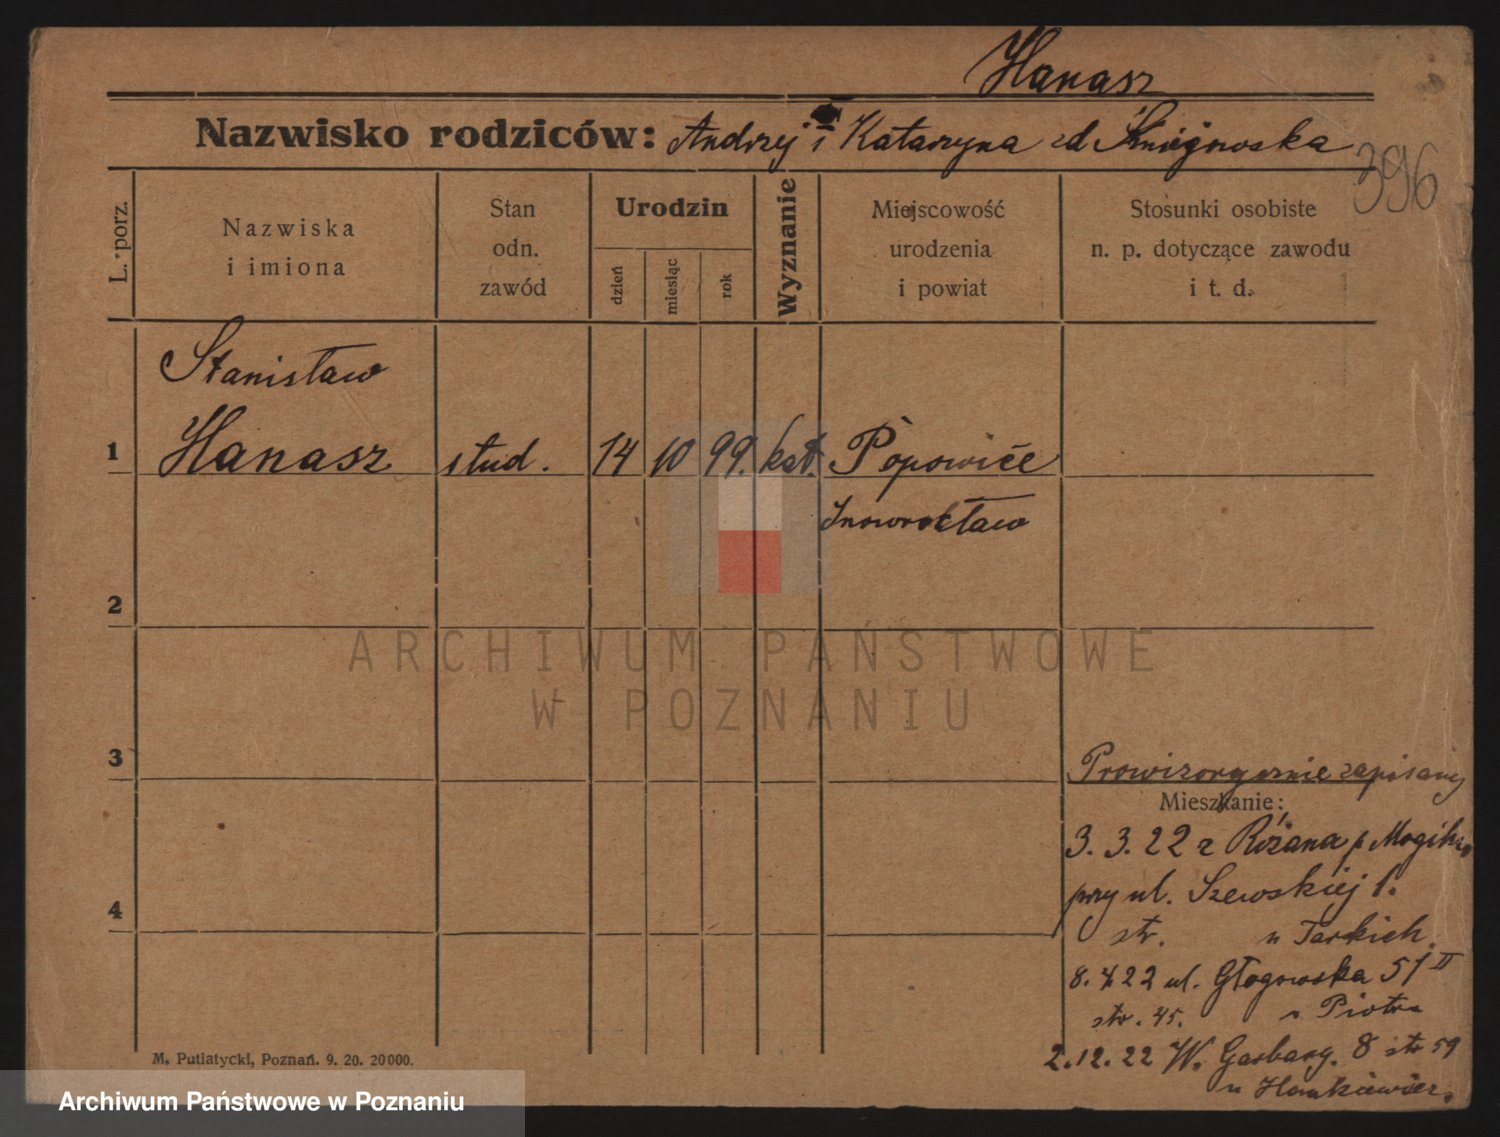 Hanasz
Nazwisko rodziców: Andrzej i Katarzyna zd Śnieżowska
396
L. porz.
Nazwiska
i imiona
Stan
odn.
zawód
Urodzin
dzień
miesiąc
rok
Wyznanie
Miejscowość
urodzenia
i powiat
Stosunki osobiste
n. p. dotyczące zawodu
i t. d.
Stanisław
1 Hanasz stud. 14 10 99. kat. Popowice
Inowrocław
2
ARCHIWUM PAŃSTWOWE
W POZNANIU
3
Prowizorycznie zapisany
Mieszkanie:
3. 3. 22 z Różana p. Mogilno
przy ul. Szewskiej 1.
4
str. u Tarkich
8. 4 22 ul. Głogowska 51 II
str. 45. u Piotra
2.12.22 W. Garbary. 8 str 59
u Hankiewicz.
M. Putiatycki, Poznań. 9. 20. 20000.
Archiwum Państwowe w Poznaniu